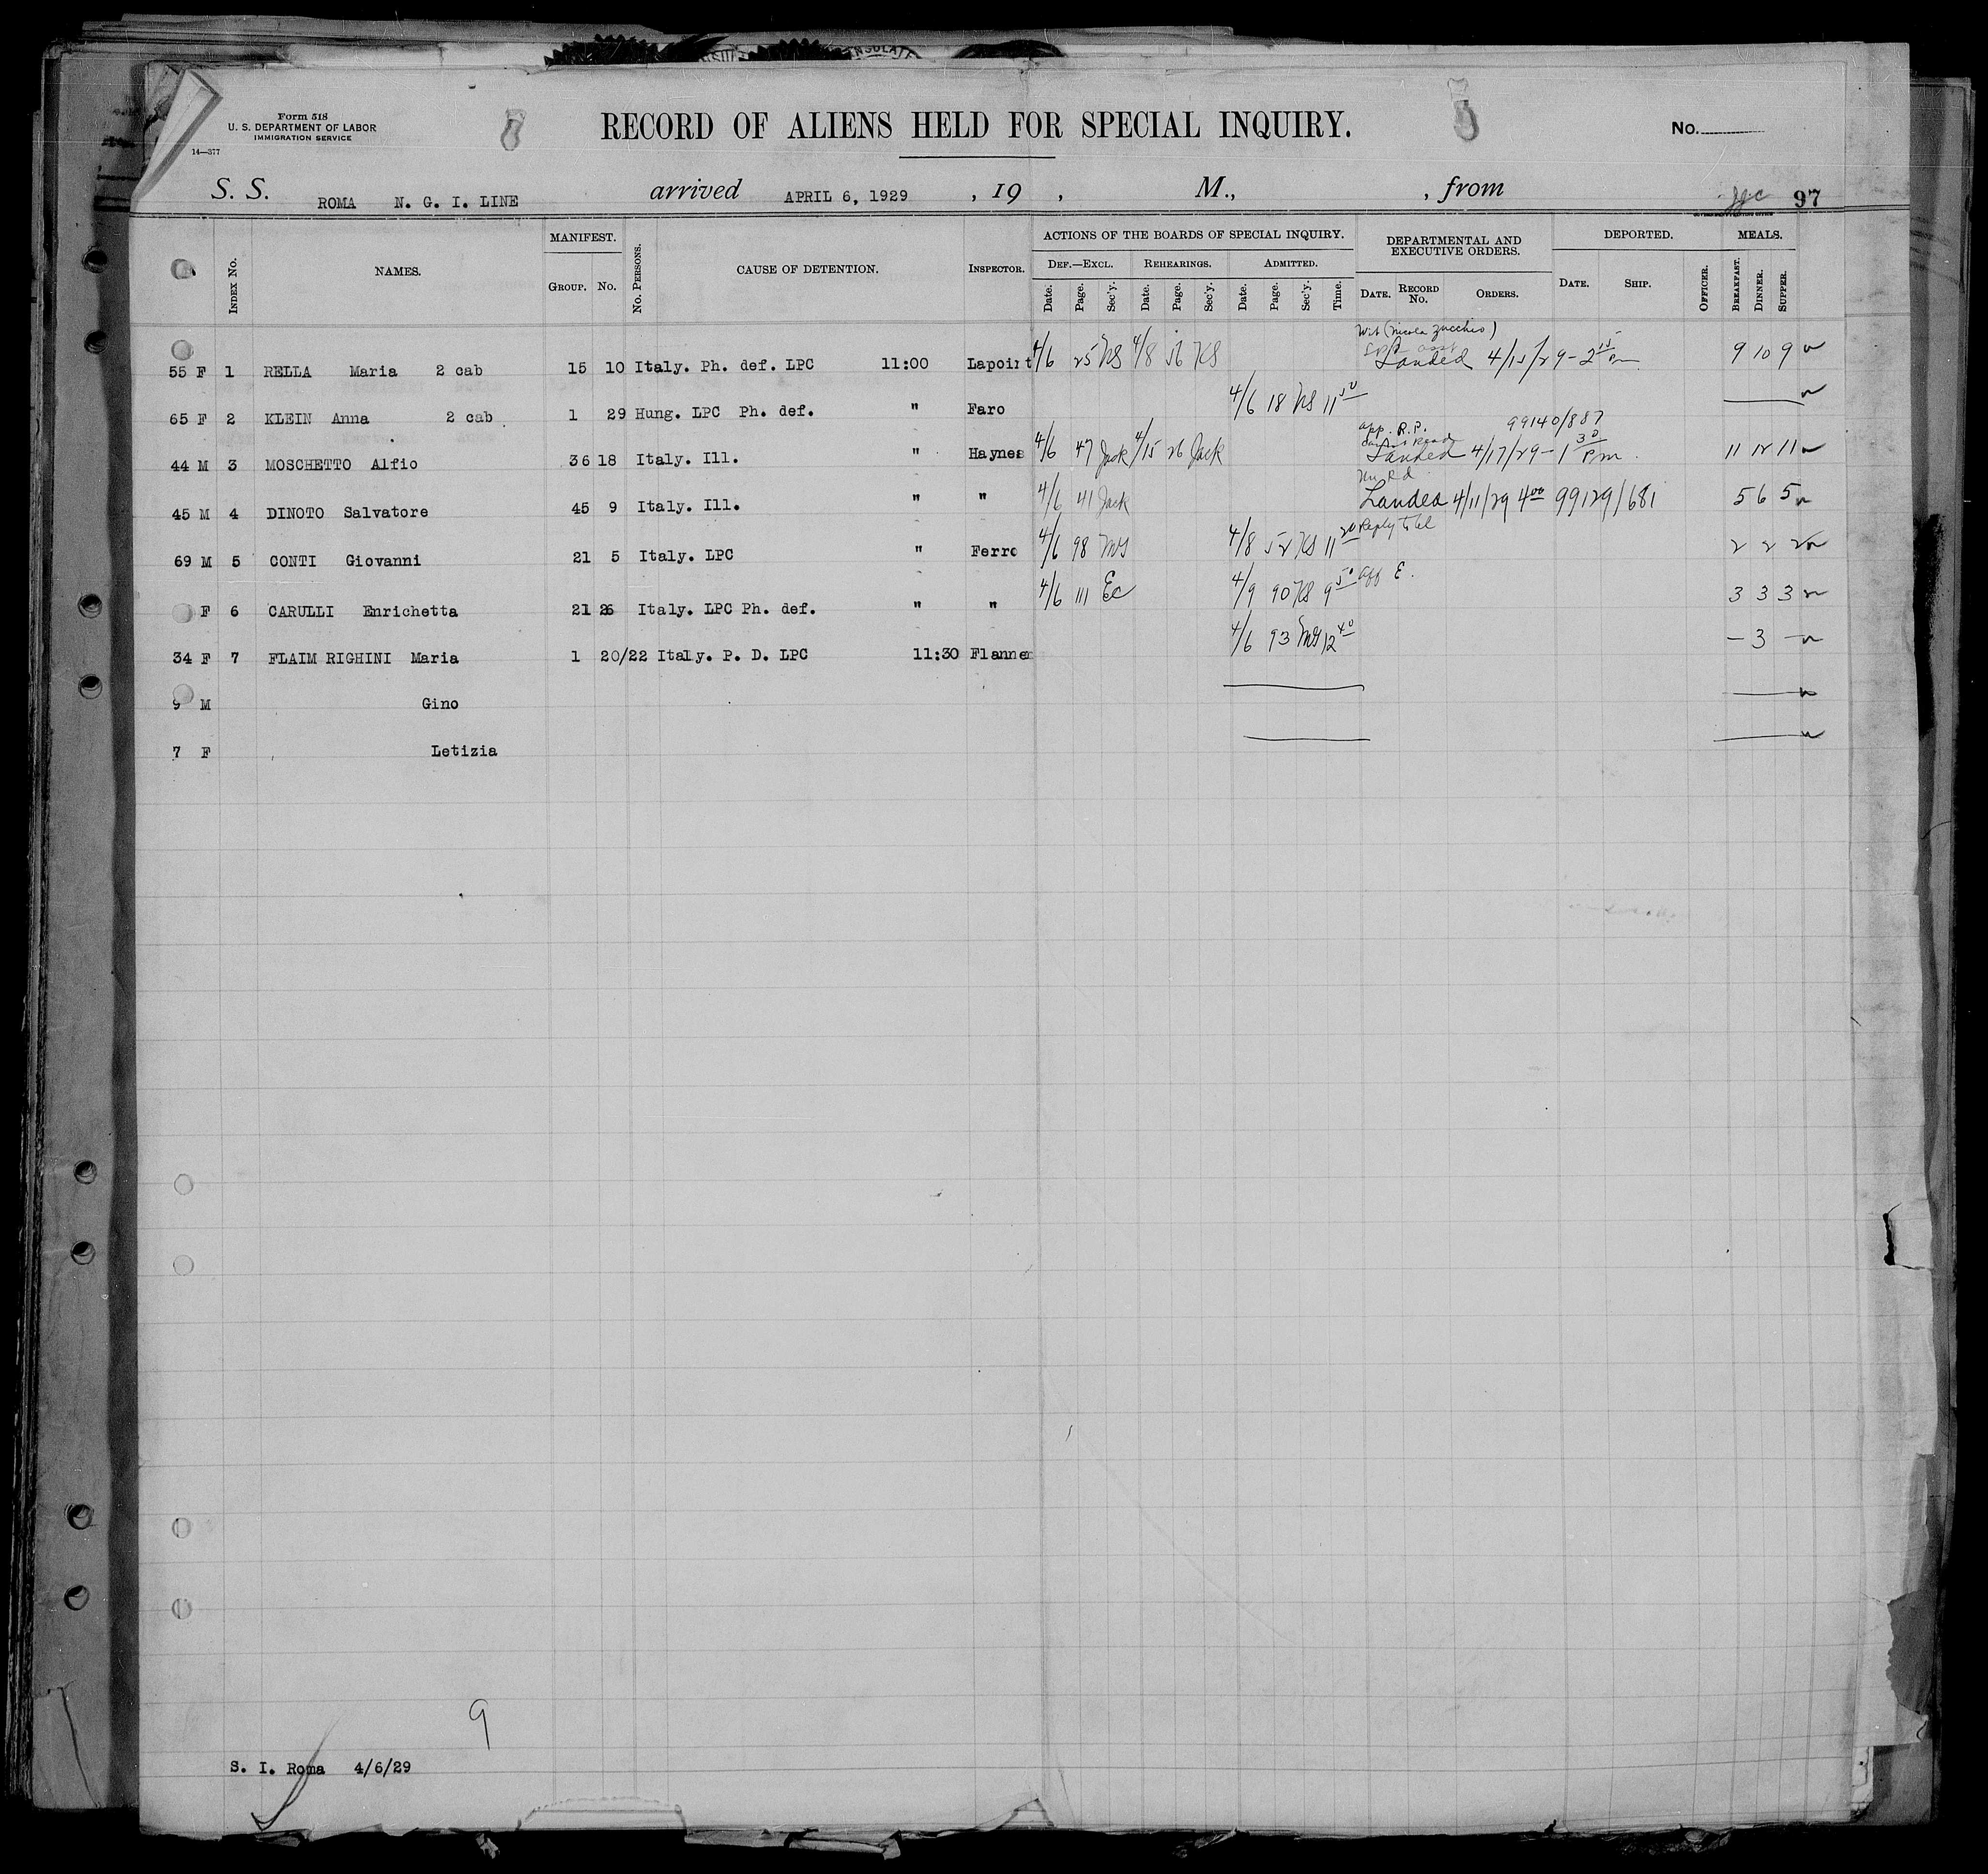 Form 518
U. S. DEPARTMENT OF LABOR
IMMIGRATION SERVICE
14—377
RECORD OF ALIENS HELD FOR SPECIAL INQUIRY.
No.
S. S. ROMA N. G. I. LINE arrived APRIL 6, 1929 , 19 , M., , from 97
INDEX No. NAMES. MANIFEST. GROUP. No. No. PERSONS. CAUSE OF DETENTION. INSPECTOR. ACTIONS OF THE BOARDS OF SPECIAL INQUIRY. DEPARTMENTAL AND EXECUTIVE ORDERS. DEPORTED. MEALS.
DEF.—EXCL. REHEARINGS. ADMITTED.
Date. Page. Sec'y. Date. Page. Sec'y. Date. Page. Sec'y. Time. DATE. RECORD No. ORDERS. DATE. SHIP. OFFICER. BREAKFAST. DINNER. SUPPER.
Wit (Nicola Zucchio)
55 F 1 RELLA Maria 2 cab 15 10 Italy. Ph. def. LPC 11:00 Lapoint 4/6 25 NS 4/8 56 KS Landed 4/15/29 - 2 15 Pm 9 10 9
65 F 2 KLEIN Anna 2 cab 1 29 Hung. LPC Ph. def. " Faro 4/6 18 NS 11 50
app. R.P. 99140/887
44 M 3 MOSCHETTO Alfio 36 18 Italy. Ill. " Haynes 4/6 47 Jack 4/15 26 Jack Landed 4/17/29 - 1 30 Pm. 11 12 11
45 M 4 DINOTO Salvatore 45 9 Italy. Ill. " " 4/6 41 Jack Landed 4/11/29 4 00 99129/681 5 6 5
69 M 5 CONTI Giovanni 21 5 Italy. LPC " Ferro 4/6 98 4/8 52 KS 11 20 Reply to tel 2 2 2
F 6 CARULLI Enrichetta 21 26 Italy. LPC Ph. def. " " 4/6 111 Ec 4/9 90 KS 9 50 aff E. 3 3 3
34 F 7 FLAIM RIGHINI Maria 1 20/22 Italy. P. D. LPC 11:30 Flanne 4/6 93 12 40 — 3 —
9 M Gino
7 F Letizia
9
S. I. Roma 4/6/29